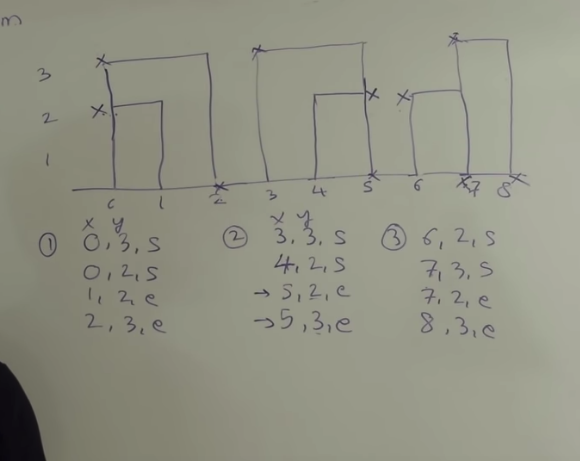 m
3
2
1
0 1 2 3 4 5 6 7 8
x y
① 0, 3, s
0, 2, s
1, 2, e
2, 3, e
x y
② 3, 3, s
4, 2, s
→ 5, 2, e
→ 5, 3, e
③ 6, 2, s
7, 3, s
7, 2, e
8, 3, e